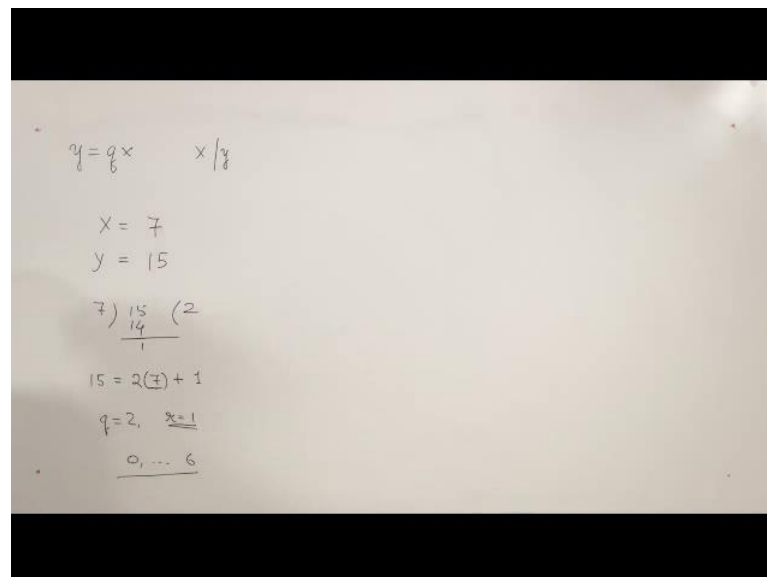 y = qx x/y
x = 7
y = 15
7) 15 (2
14
1
15 = 2(7) + 1
q=2, r=1
0, ... 6